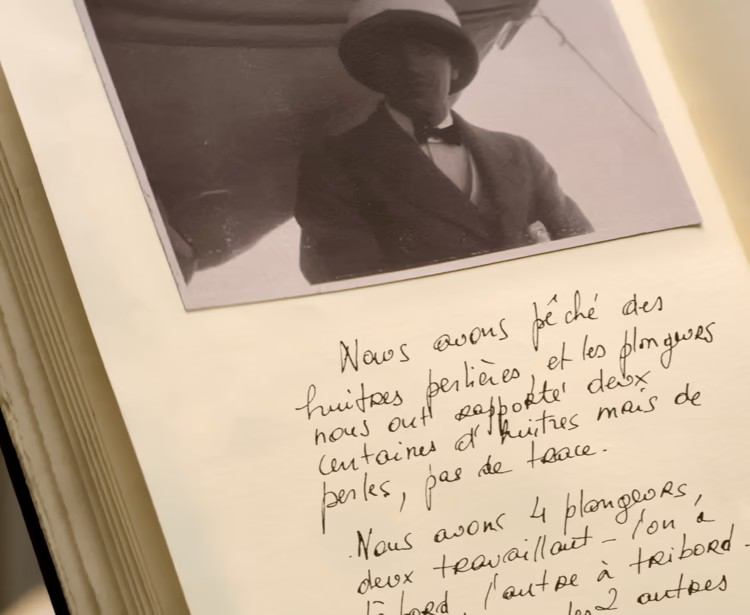 Nous avons pêché des
huitres perlières, et les plongeurs
nous ont rapporté deux
centaines d'huitres mais de
perles, pas de trace.
Nous avons 4 plongeurs,
deux travaillant - l'on à
bord, l'autre à tribord -
les 2 autres